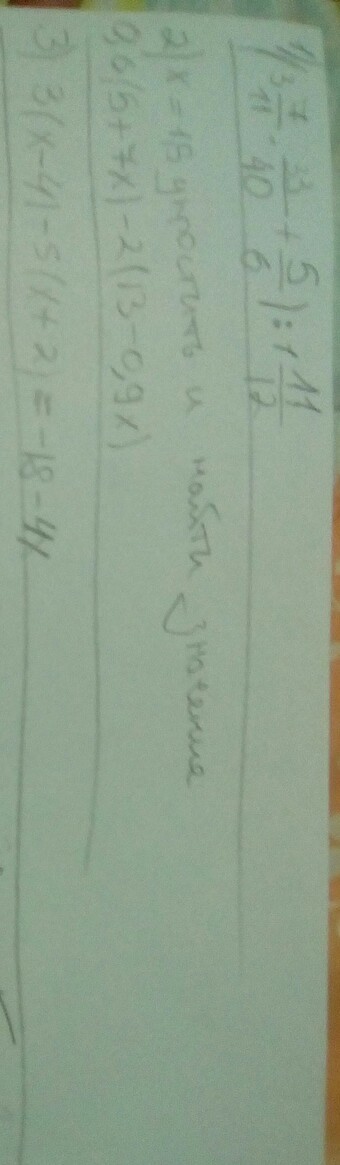 1) (3 7/11 · 33/40 + 5/6) : 1 11/12
2) x = 15 упростить и найти значение
0,6(5+7x)-2(13-0,9x)
3) 3(x-4)-5(x+2)=-18-4x